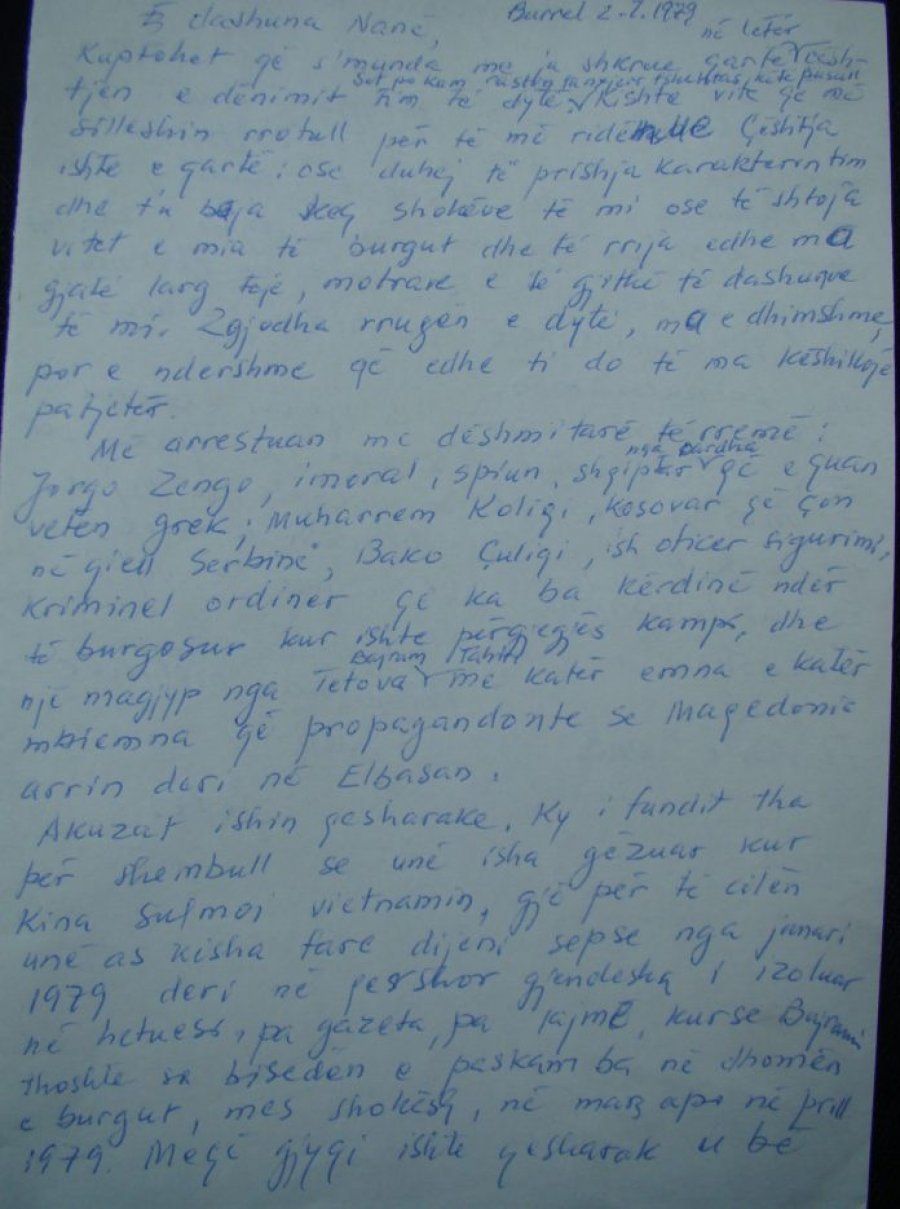 E dashuna Nanë,
Burrel 2-7.1979
Kuptohet që s'munda me ja shkrue qartë në letër çësh-
tjen e dënimit tim të dytë. Sot po kam rasthn ta nxjerr fshehtas, këtë pusull Kishte vite që më
silleshin rrotull për të më ridënue Çështja
ishte e qartë: ose duhej të prishja karakterin tim
dhe t'u baja keq shokëve të mi ose të shtoja
vitet e mia të burgut dhe të rrija edhe ma
gjatë larg teje, motrave e të gjithë të dashunve
të mi. Zgjodha rrugën e dytë, ma e dhimshme,
por e ndershme që edhe ti do të ma këshilloje
patjetër.
Më arrestuan me dëshmitarë të rremë:
Jorgo Zengo, imoral, spiun, shqiptar nga Dardha që e quan
veten grek; Muharrem Koliqi, kosovar që çon
në qiell Serbinë, Bako Çuliqi, ish oficer sigurimi,
kriminel ordiner që ka ba kërdinë ndër
të burgosur kur ishte përgjegjës kampi, dhe
një magjyp nga Tetova Bajram Tahiri me katër emna e katër
mbiemna që propagandonte se Maqedonia
arrin deri në Elbasan.
Akuzat ishin qesharake. Ky i fundit tha
për shembull se unë isha gëzuar kur
Kina sulmoi Vietnamin, gjë për të cilën
unë as kisha fare dijeni sepse nga janari
1979 deri në qershor gjendesha i izoluar
në hetuesi, pa gazeta, pa lajme, kurse Bajrami
thoshte se bisedën e paskam ba në dhomën
e burgut, mes shokësh, në mars apo në prill
1979. Meqë gjyqi ishte qesharak u bë